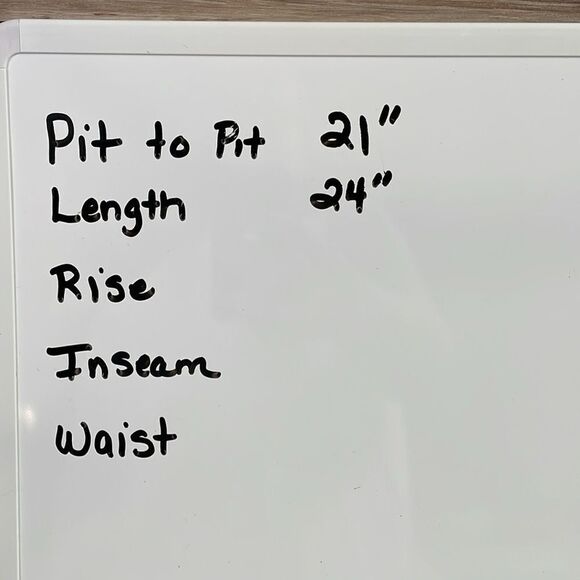 Pit to Pit 21"
Length 24"
Rise
Inseam
Waist